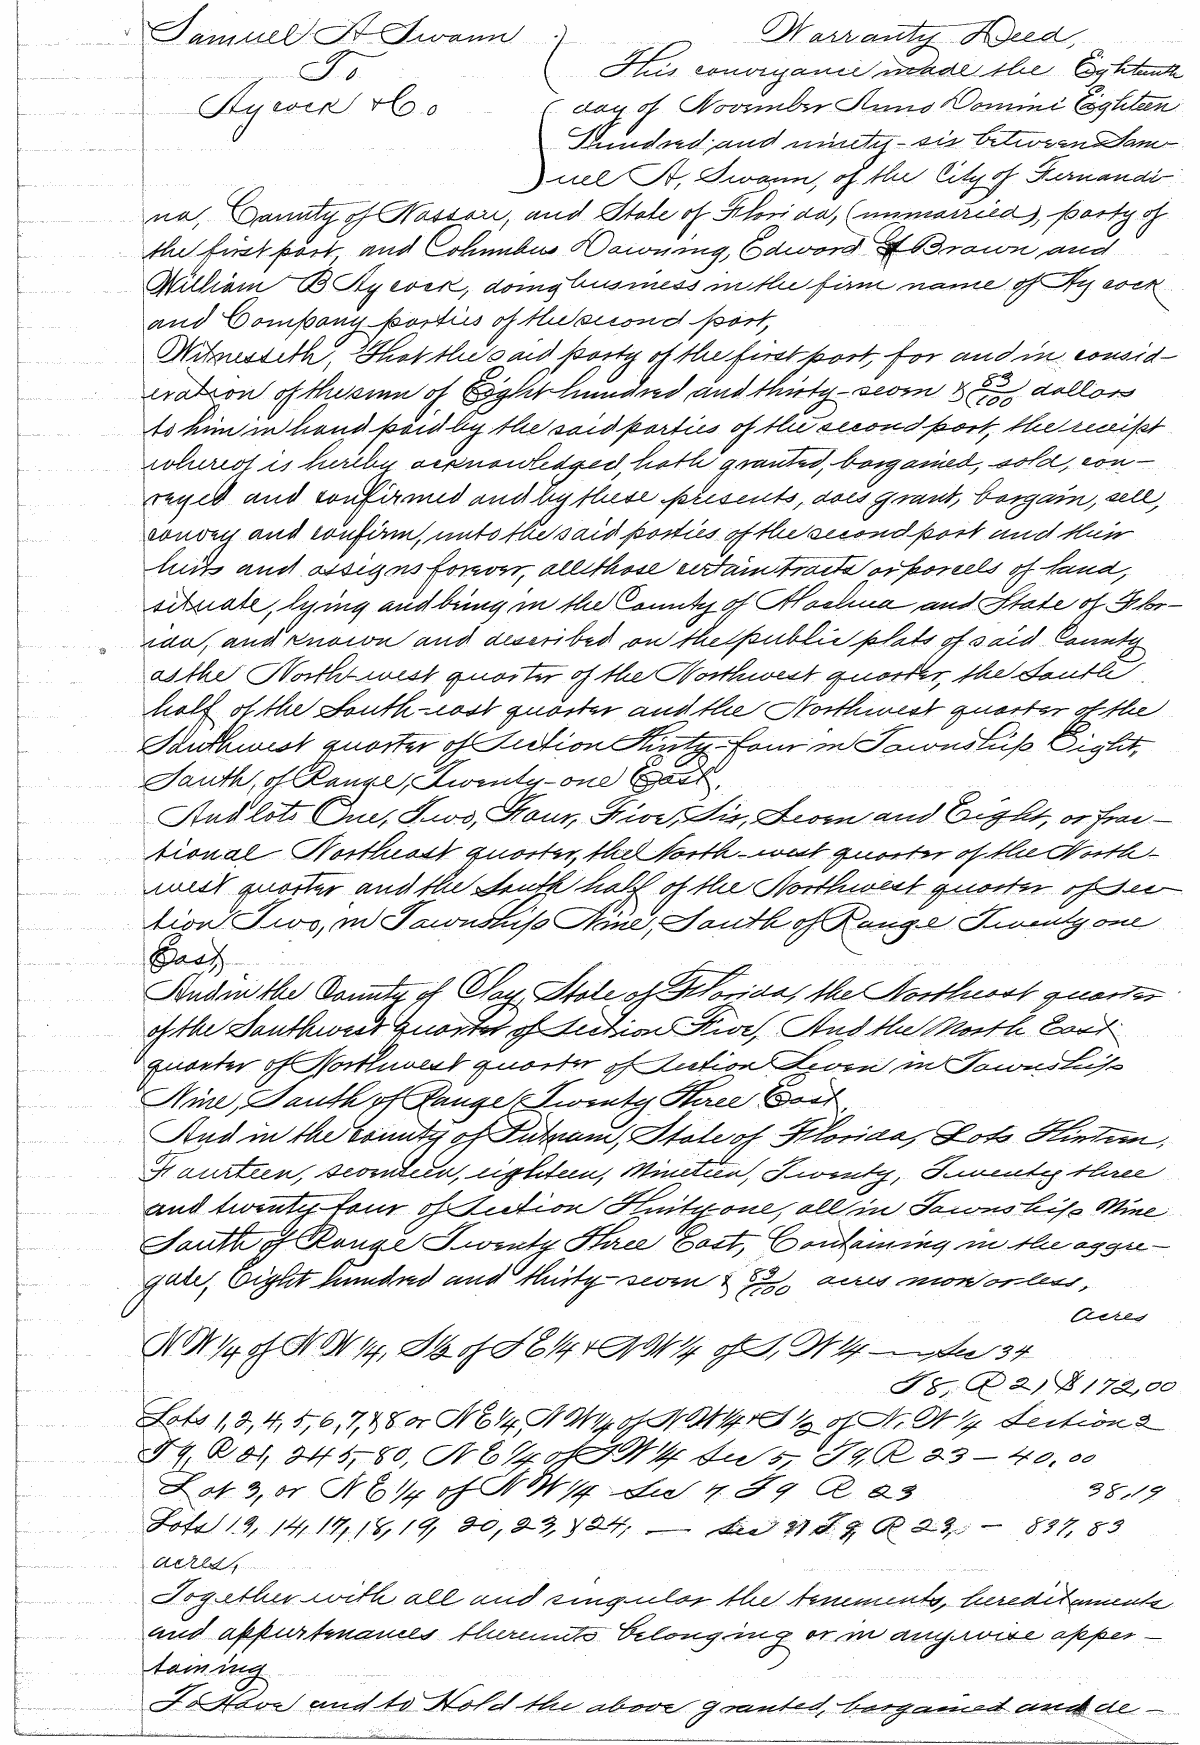 Samuel A Swann
To
Aycock & Co
Warranty Deed,
This conveyance made the Eighteenth
day of November Anno Domini Eighteen
Hundred and ninety-six between Sam-
uel A, Swann, of the City of Fernandi-
na, County of Nassau, and State of Florida, (unmarried), party of
the first part, and Columbus Downing, Edward Brown and
William B Aycock, doing business in the firm name of Aycock
and Company parties of the second part,
Witnesseth, That the said party of the first part, for and in consid-
eration of the sum of Eight hundred and thirty-seven & 83/100 dollars
to him in hand paid by the said parties of the second part, the receipt
whereof is hereby acknowledged, hath granted, bargained, sold, con-
veyed and confirmed and by these presents, does grant, bargain, sell,
convey and confirm, unto the said parties of the second part and their
heirs and assigns forever, all those certain tracts or parcels of land,
situate, lying and being in the County of Alachua and State of Flor-
ida, and known and described on the public plats of said County
as the North-west quarter of the Northwest quarter, the South
half of the South-east quarter and the Northwest quarter of the
Southwest quarter of Section Thirty-four in Township Eight,
South, of Range, Twenty-one East,
And lots One, Two, Four, Five, Six, Seven and Eight, or frac-
tional Northeast quarter, the North-west quarter of the North-
west quarter and the South half of the Northwest quarter of Sec-
tion Two, in Township Nine, South of Range Twenty one
East,
And in the County of Clay, State of Florida, the Northeast quarter
of the Southwest quarter of Section Five, And the North East
quarter of Northwest quarter of Section Seven in Township
Nine, South of Range Twenty Three East
And in the county of Putnam, State of Florida, Lots Thirteen,
Fourteen, seventeen, eighteen, Nineteen, Twenty, Twenty three
and twenty four of Section Thirty one, all in Township Nine
South of Range Twenty Three East, Containing in the aggre-
gate, Eight hundred and thirty-seven & 83/100 acres more or less,
Acres
N W 1/4 of N W 1/4, S 1/2 of S E 1/4 & N W 1/4 of S, W 1/4 — Sec 34
T 8, R 21 172,00
Lots 1, 2, 4, 5, 6, 7, & 8 or N E 1/4, N W 1/4 of N W 1/4 & S 1/2 of N. W 1/4 Section 2
T 9, R 21, 245,80, N E 1/4 of S W 1/4 Sec 5, T 9, R 23 – 40,00
Lot 3, or N E 1/4 of N W 1/4 Sec 7 T 9 R 23 38,19
Lots 13, 14, 17, 18, 19, 20, 23, & 24, — Sec 31 T 9, R 23, – 837,83
acres,
Together with all and singular the tenements, hereditaments
and appurtenances thereunto belonging or in anywise apper-
taining
To Have and to Hold the above granted, bargained and de-